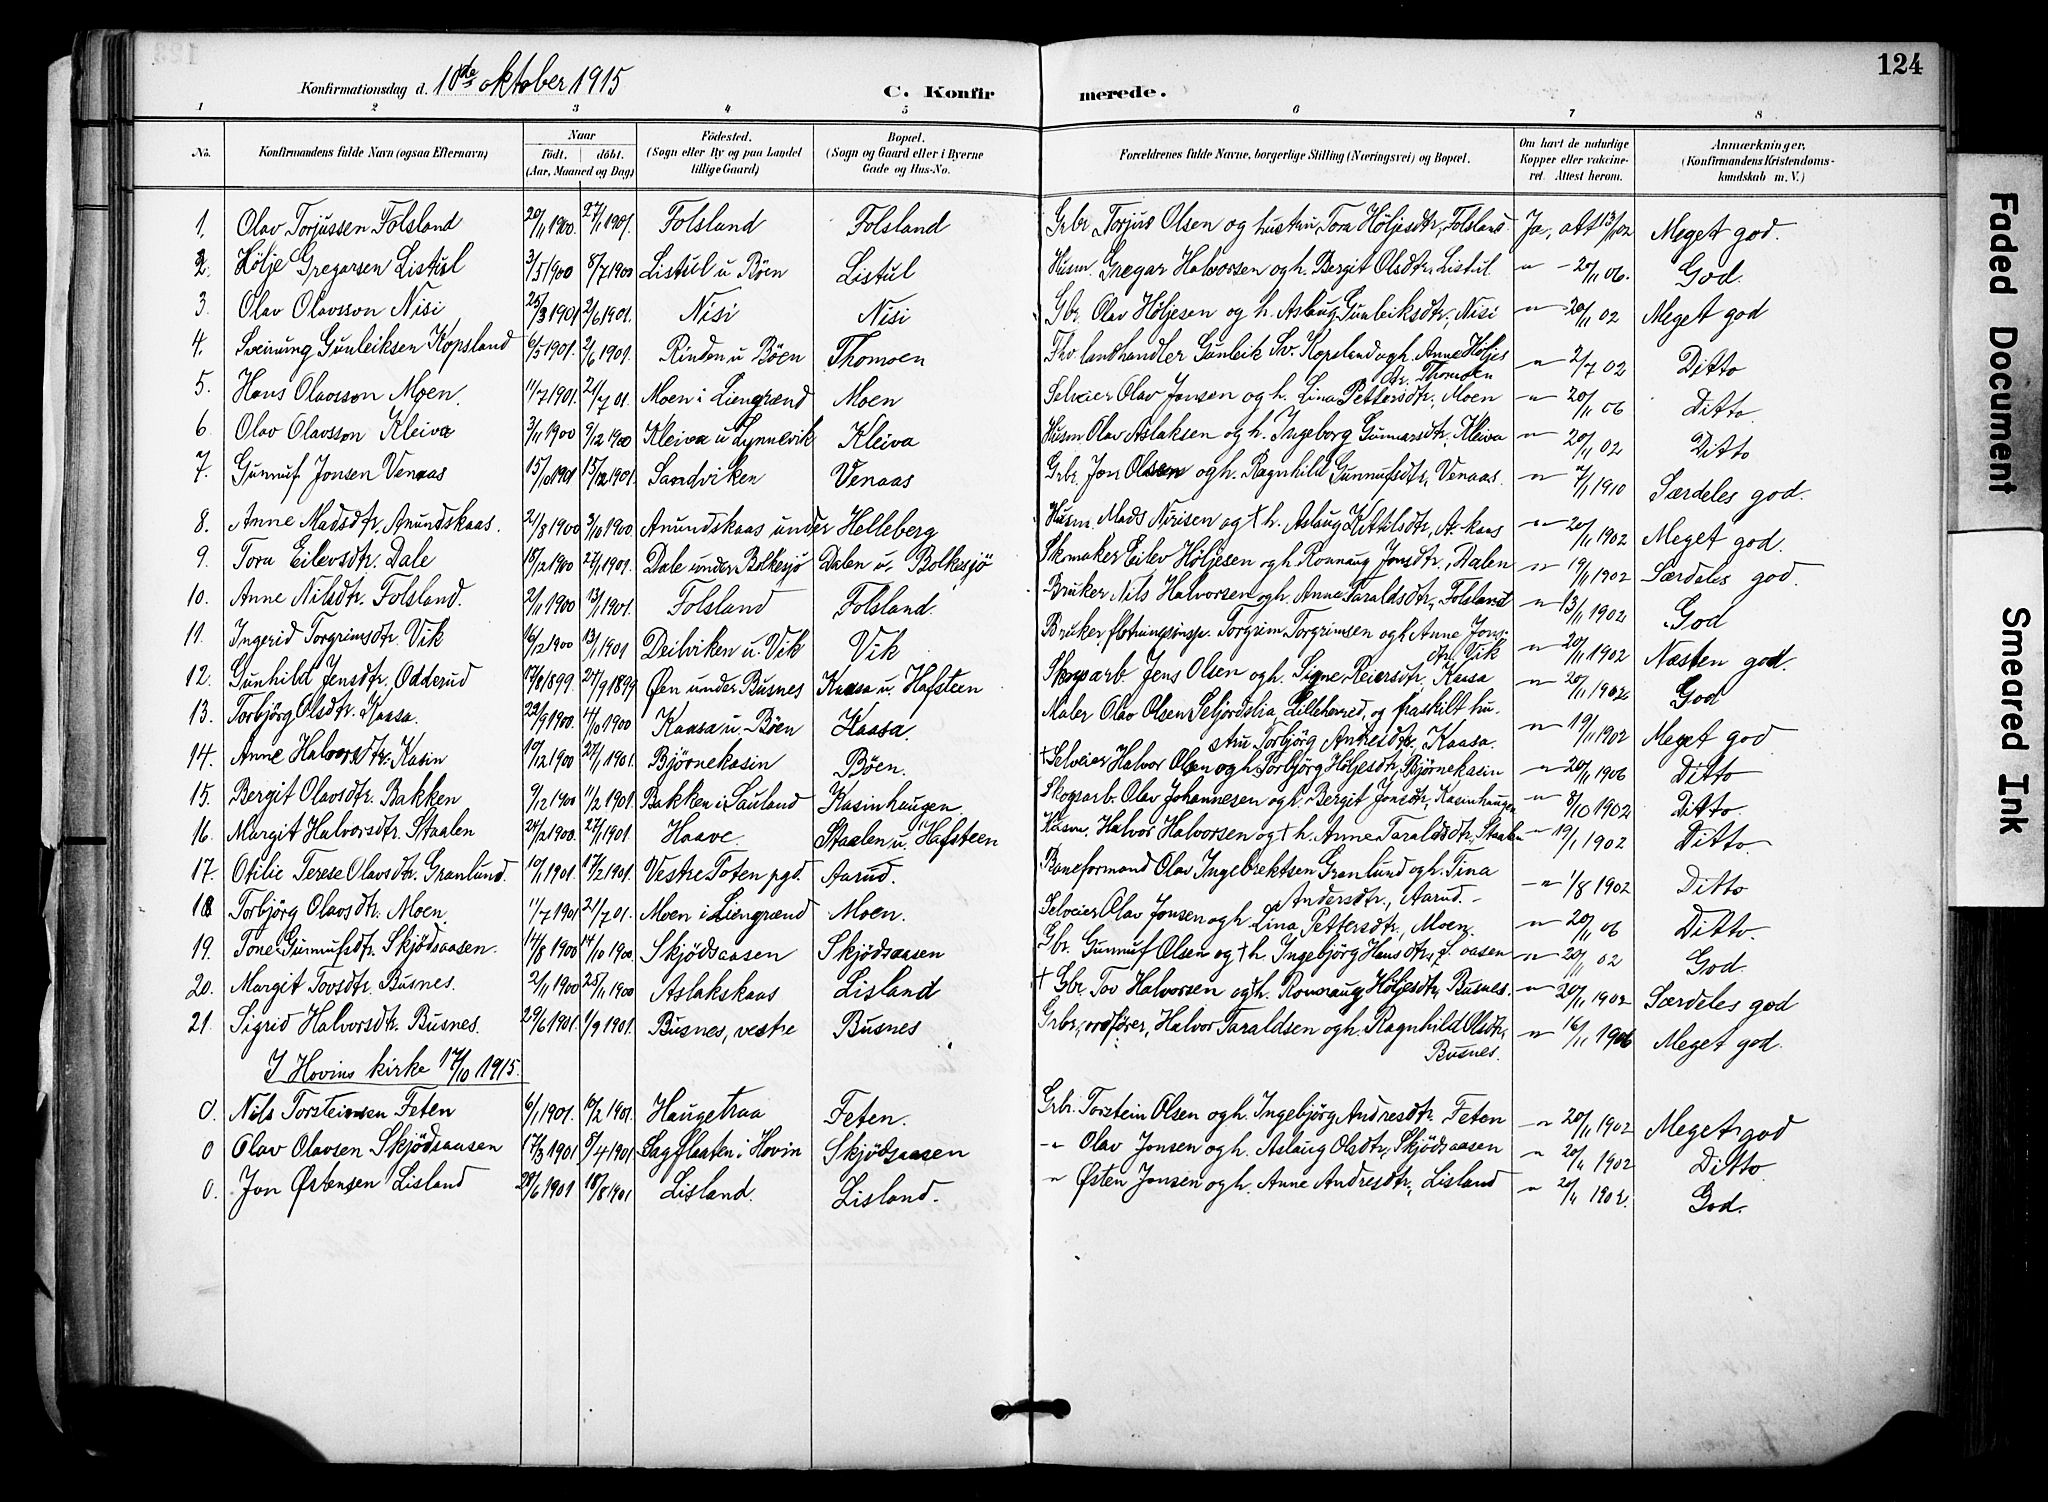 124
Konfirmationsdag d. 10de oktober 1915 C. Konfirmerede.
1 2 3 4 5 6 7 8
No. Konfirmandens fulde Navn (ogsaa Efternavn) Naar födt. döbt. (Aar, Maaned og Dag) Födested. (Sogn eller By og paa Landet tillige Gaard) Bopæl. (Sogn og Gaard eller i Byerne Gade og Hus-No. Forældrenes fulde Navne, borgerlige Stilling (Næringsvei) og Bopæl. Om havt de naturlige Kopper eller vakcineret. Attest herom. Anmærkninger. (Konfirmandens Kristendomskundskab m. V.)
1. Olav Torjussen Folsland 20/11 1900. 27/1 1901. Folsland Folsland Grbr. Torjus Olsen og hustru, Tora Höljesdtr, Folsland Ja, att 13/1 02 Meget god.
2. Hölje Gregarsen Listul 3/5 1900 8/7 1900 Listul u Böen Listul Husm. Gregar Halvorsen og h. Bergit Olsdtr. Listul " - 20/11 06. God.
3. Olav Olavsson Nisi 25/3 1901 2/6 1901. Nisi Nisi Gbr. Olav Höljesen og h. Aslaug Gunleiksdtr, Nisi " 20/11 02 Meget god
4. Sveinung Gunleiksen Kopsland 6/5 1901. 2/6 1901. Rinden u Böen Thomoen Fhv. landhandler Gunleik Sv. Kopsland og h. Anne Höljesdtr. Thomoen " 2/7 02 Ditto
5. Hans Olavsson Moen. 11/7 1901. 21/7 01. Moen i Liengrænd Moen Selveier Olav Jonsen og h. Lina Pettersdtr, Moen " 20/11 06 Ditto.
6. Olav Olavsson Kleiva 3/11 1900 9/12 1900 Kleiva u Lynnevik Kleiva Husm Olav Aslaksen og h. Ingeborg Gunnarsdtr, Kleiva " 20/11 02 Ditto
7. Gunnuf Jonsen Venaas 15/10 1901 15/12 1901. Sandviken Venaas Grbr. Jon Olsen og h. Ragnhild Gunnufsdtr, Venaas. " 7/11 1910 Særdeles god.
8. Anne Madsdtr. Anundskaas. 21/8 1900 3/10 1900. Anundskaas under Helleberg Husm. Mads Nirisen og † h. Aslaug Kittilsdtr, A-kaas " 20/11 1902 Meget god.
9. Tora Eilevsdtr. Dale 18/12 1900 27/1 1901. Dale under Bolkesjö Dalen u. Bolkesjö Skmaker Eilev Höljesen og h. Ronnaug Jonsdtr., Dalen " 19/11 1902 Særdeles god.
10. Anne Nilsdtr. Folsland. 2/11 1900 13/1 1901. Folsland Folsland. Bruker Nils Halvorsen og h. Anne Taraldsdtr, Folsland " 13/11 1902 God
11. Ingerid Torgrimsdtr. Vik 16/12 1900 13/1 1901 Deilviken u. Vik Vik Bruker flotningsinsp. Torgrim Torgrimsen og h Anne Jonsdtr. Vik " 20/11 1902 Næsten god.
12. Gunhild Jensdtr. Odderud 17/8 1899. 27/9 1899 Øen under Busnes Kaasa u. Hafsteen Skogsarb. Jens Olsen og h. Signe Reiersdtr, Kaasa " 20/11 1902 God
13. Torbjörg Olsdtr. Kaasa. 22/9 1900. 4/10 1900 Kaasa u. Böen Kaasa. Maler Olav Olsen Seljordslia, Lilleherred, og fraskilt hustru Torbjörg Andresdtr, Kaasa. " 19/11 1902 Meget god
14. Anne Halvorsdtr. Kasin 10/12 1900 27/1 1901. Björnekasin Böen. † Selveier Halvor Olsen og h. Torbjörg Höljesdtr, Björnekasin " 20/11 1906 Ditto
15. Bergit Olavsdtr. Bakken 9/12 1900 11/2 1901. Bakken i Sauland Kasinhaugen. Skogsarb. Olav Johannesen og h. Bergit Jonsdtr, Kasinhaugen " 8/10 1902 Ditto.
16. Margit Halvorsdtr. Staalen 24/12 1900. 27/1 1901. Haave. Staalen u. Hafsteen Husm. Halvor Halvorsen og † h. Anne Taraldsdtr, Staalen - 19/1 1902 Ditto.
17. Otilie Terese Olavsdtr. Granlund. 10/1 1901. 17/2 1901. Vestre Toten pgd. Aarud. Baneformand Olav Ingebrektsen Granlund og h. Tina Andersdtr, Aarud. - " 1/8 1902 Ditto
18 Torbjörg Olavsdtr. Moen. 11/7 1901 21/7 01. Moen i Liengrænd Moen. Selveier Olav Jonsen og h. Lina Pettersdtr, Moen. " 20/11 06 Ditto.
19. Tone Gunnufsdtr. Skjödsaasen. 14/8 1900 14/10 1900. Skjödsaasen Skjödsaasen Gbr. Gunnuf Olsen og † h. Ingebjörg Hansdtr, S. aasen " 20/11 02 God.
20. Margit Tovsdtr. Busnes. 2/11 1900 25/11 1900 Aslakskaas Lisland † Gbr. Tov Halvorsen og h. Ronnaug Höljesdtr, Busnes. " 20/11 1902 Særdeles god
21. Sigrid Halvorsdtr. Busnes. 29/6 1901. 1/9 1901. Busnes, vestre Busnes Grbr., ordförer, Halvor Taraldsen og h. Ragnhild Olsdtr, Busnes. " 16/11 1906 Meget god.
I Hovins kirke 17/10 1915.
0. Nils Torsteinsen Feten 6/1 1901. 10/2 1901. Haugetraa Feten. Grbr. Torstein Olsen og h. Ingebjörg Andresdtr. Feten " 20/11 1902 Meget god
0 Olav Olavsen Skjödsaasen 17/3 1901 8/4 1901 Sagflaaten i Hovin Skjödsaasen " Olav Jonsen og h. Aslaug Olsdtr, Skjödsaasen " 20/11 1902 Ditto.
0. Jon Østensen Lisland 28/6 1901 18/8 1901 Lisland. Lisland. " Østen Jonsen og h. Anne Andresdtr., Lisland " 20/11 1902. God.
Faded Document
Smeared Ink